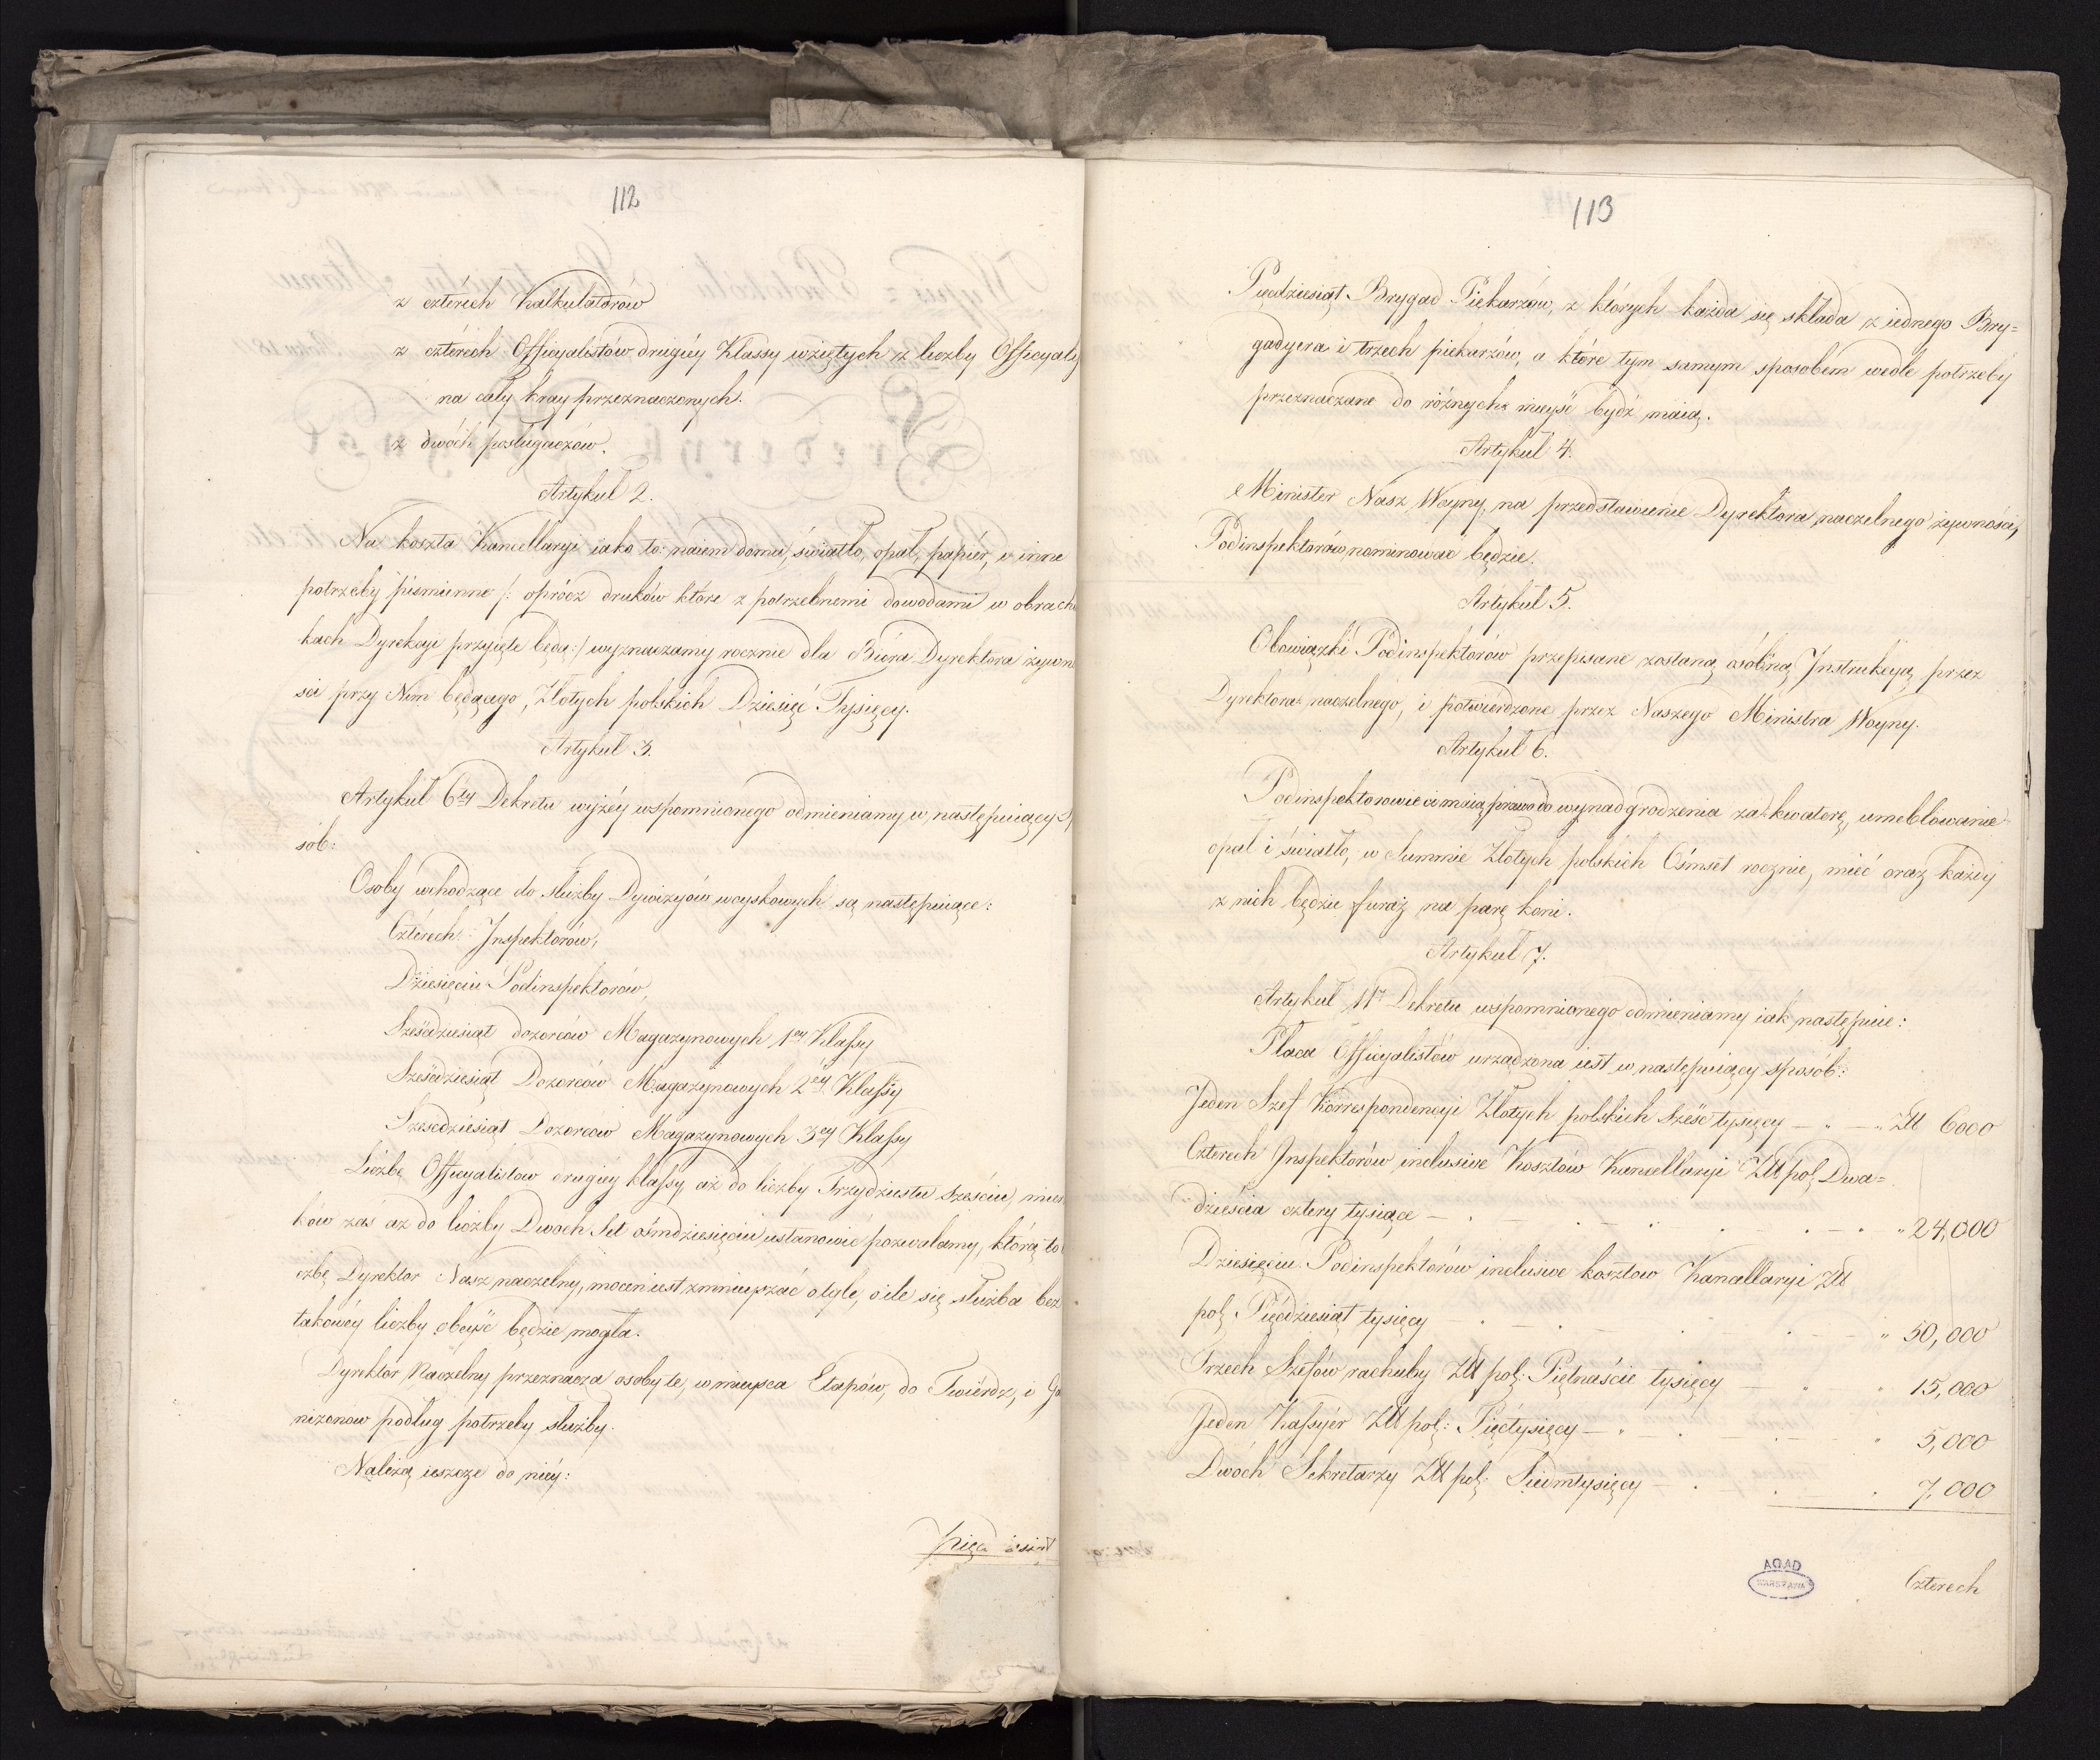 112
z czterech Kalkulatorów
z czterech Officyalistów drugiéy Klassy wziętych z liczby Officyali
na cały kray przeznaczonych.
z dwóch posługaczów.
Artykuł 2.
Na koszta Kancellaryi iako to: naiem domu, światło, opał, papiér, i inne
potrzeby piśmienne /: oprócz druków które z potrzebnemi dowodami w obrach
kach Dyrekcyi przyięte będą:/ wyznaczamy rocznie dla Biura Dyrektora żywno
ści przy Nim będącego, Złotych polskich Dziesięć Tysięcy.
Artykuł 3.
Artykuł 6ty Dekretu wyżéy wspomnionego odmieniamy w następuiący Sp
sób:
Osoby wchodzące do służby Dywizyiów woyskowych są następuiące:
Czterech Inspektorów,
Dziesięciu Podinspektorów,
Sześćdziesiąt dozorców Magazynowych 1ey Klassy
Sześćdziesiąt Dozorców Magazynowych 2éy Klassy
Sześćdziesiąt Dozorców Magazynowych 3ey Klassy
Liczbę Officyalistów drugiéy klassy, aż do liczby Trzydziestu Sześciu,
ków zaś aż do liczby Dwóch Set ośmdziesięciu ustanowić pozwalamy, którą to
czbę Dyrektor Nasz naczelny, mocen iest zmnieyszać o tyle, o ile się służba bez
takowéy liczby obeyść będzie mogła.
Dyrektor Naczelny przeznacza osoby te, w mieysca Etapów, do Twierdz, i Ga
nizonów podług potrzeby służby.
Należą ieszcze do niéy:
113
Pięćdziesiąt Brygad Piekarzów, z których każda się składa z iednego Bry=
gadyera i trzech piekarzów, a które tym samym sposobem wedle potrzeby
przeznaczane do różnych mieysc bydź maią.
Artykuł 4.
Minister Nasz Woyny, na przedstawienie Dyrektora naczelnego żywności,
Podinspektorów nominować będzie.
Artykuł 5.
Obowiązki Podinspektorów przepisane zostaną osobną Instrukcyą przez
Dyrektora naczelnego, i potwierdzone przez Naszego Ministra Woyny.
Artykuł 6.
Podinspektorowie ci maią prawo do wynadgrodzenia za kwaterę, umeblowanie
opał i światło, w Summie Złotych polskich Ośmset rocznie, mieć oraz każdy
z nich będzie furaż na parę koni.
Artykuł 7.
Artykuł 11 Dekretu wspomnionego odmieniamy iak następuie:
Płaca Officyalistów urządzona iest w następuiący sposób:
Jeden Szef Korrespondencyi Złotych polskich Sześć tysięcy — " — " Zł 6000
Czterech Inspektorów inclusive Kosztów Kancellaryi Zł pol: Dwa=
dzieścia cztery tysiące — " 24,000
Dziesięciu Podinspektorów inclusive kosztów Kancellaryi Zł
pol: Pięćdziesiąt tysięcy — " 50,000
Trzech Szefów rachuby Zł pol: Piętnaście tysięcy — " 15,000
Jeden Kassyér Zł pol: Pięć tysięcy — " 5,000
Dwóch Sekretarzy Zł pol: Siedm tysięcy — 7,000
AGAD
WARSZAWA
Czterech